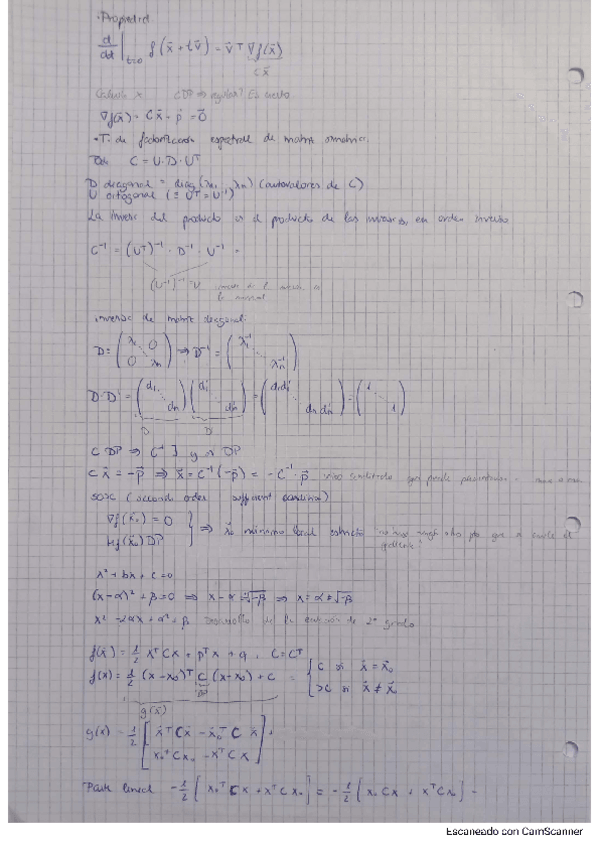 ·Propiedad.
d/dt |t=0 f(x⃗ + t v⃗) = v⃗ᵀ ∇f(x⃗)
C x⃗
∇f(x⃗) = C x⃗ + p⃗ = 0⃗
·T. de factorización espectral de matriz simétrica.
C = U·D·Uᵀ
D diagonal = diag(λ₁, λn) (autovalores de C)
U ortogonal (≡ Uᵀ = U⁻¹)
La inversa del producto es el producto de las inversas en orden inverso
C⁻¹ = (Uᵀ)⁻¹ · D⁻¹ · U⁻¹ =
(U⁻¹)⁻¹ = U
inversa de matriz diagonal:
D = (λ₁ 0 0 λn) ⇒ D⁻¹ = (λ₁⁻¹ λn⁻¹)
D·D' = (d₁ dn) (d₁' dn') = (d₁d₁' dn dn') = (1 1)
D D'
C DP ⇒ C⁻¹ ∃ y es DP
C x⃗ = -p⃗ ⇒ x⃗ = C⁻¹(-p⃗) = -C⁻¹·p⃗
SOSC (second order sufficient condition)
∇f(x⃗₀) = 0
Hf(x⃗₀) DP
⇒ x⃗₀ mínimo local estricto
x² + bx + c = 0
(x-α)² + β = 0 ⇒ x-α = ±√-β ⇒ x = α ± √-β
x² - 2αx + α² + β desarrollo de la ecuación de 2º grado
f(x⃗) = 1/2 xᵀCx + pᵀx + q, C = Cᵀ
f(x) = 1/2 (x-x₀)ᵀ C (x-x₀) + c = { c si x⃗ = x⃗₀
DP
>c si x⃗ ≠ x⃗₀
g(x⃗)
g(x) = 1/2 [ x⃗ᵀ C x⃗ - x⃗₀ᵀ C x⃗
x₀ᵀ C x₀ - xᵀ C x ]
Parte lineal -1/2 [ x₀ᵀ C x + xᵀ C x₀ ] = -1/2 [ x₀ C x + xᵀ C x₀ ] =
Escaneado con CamScanner